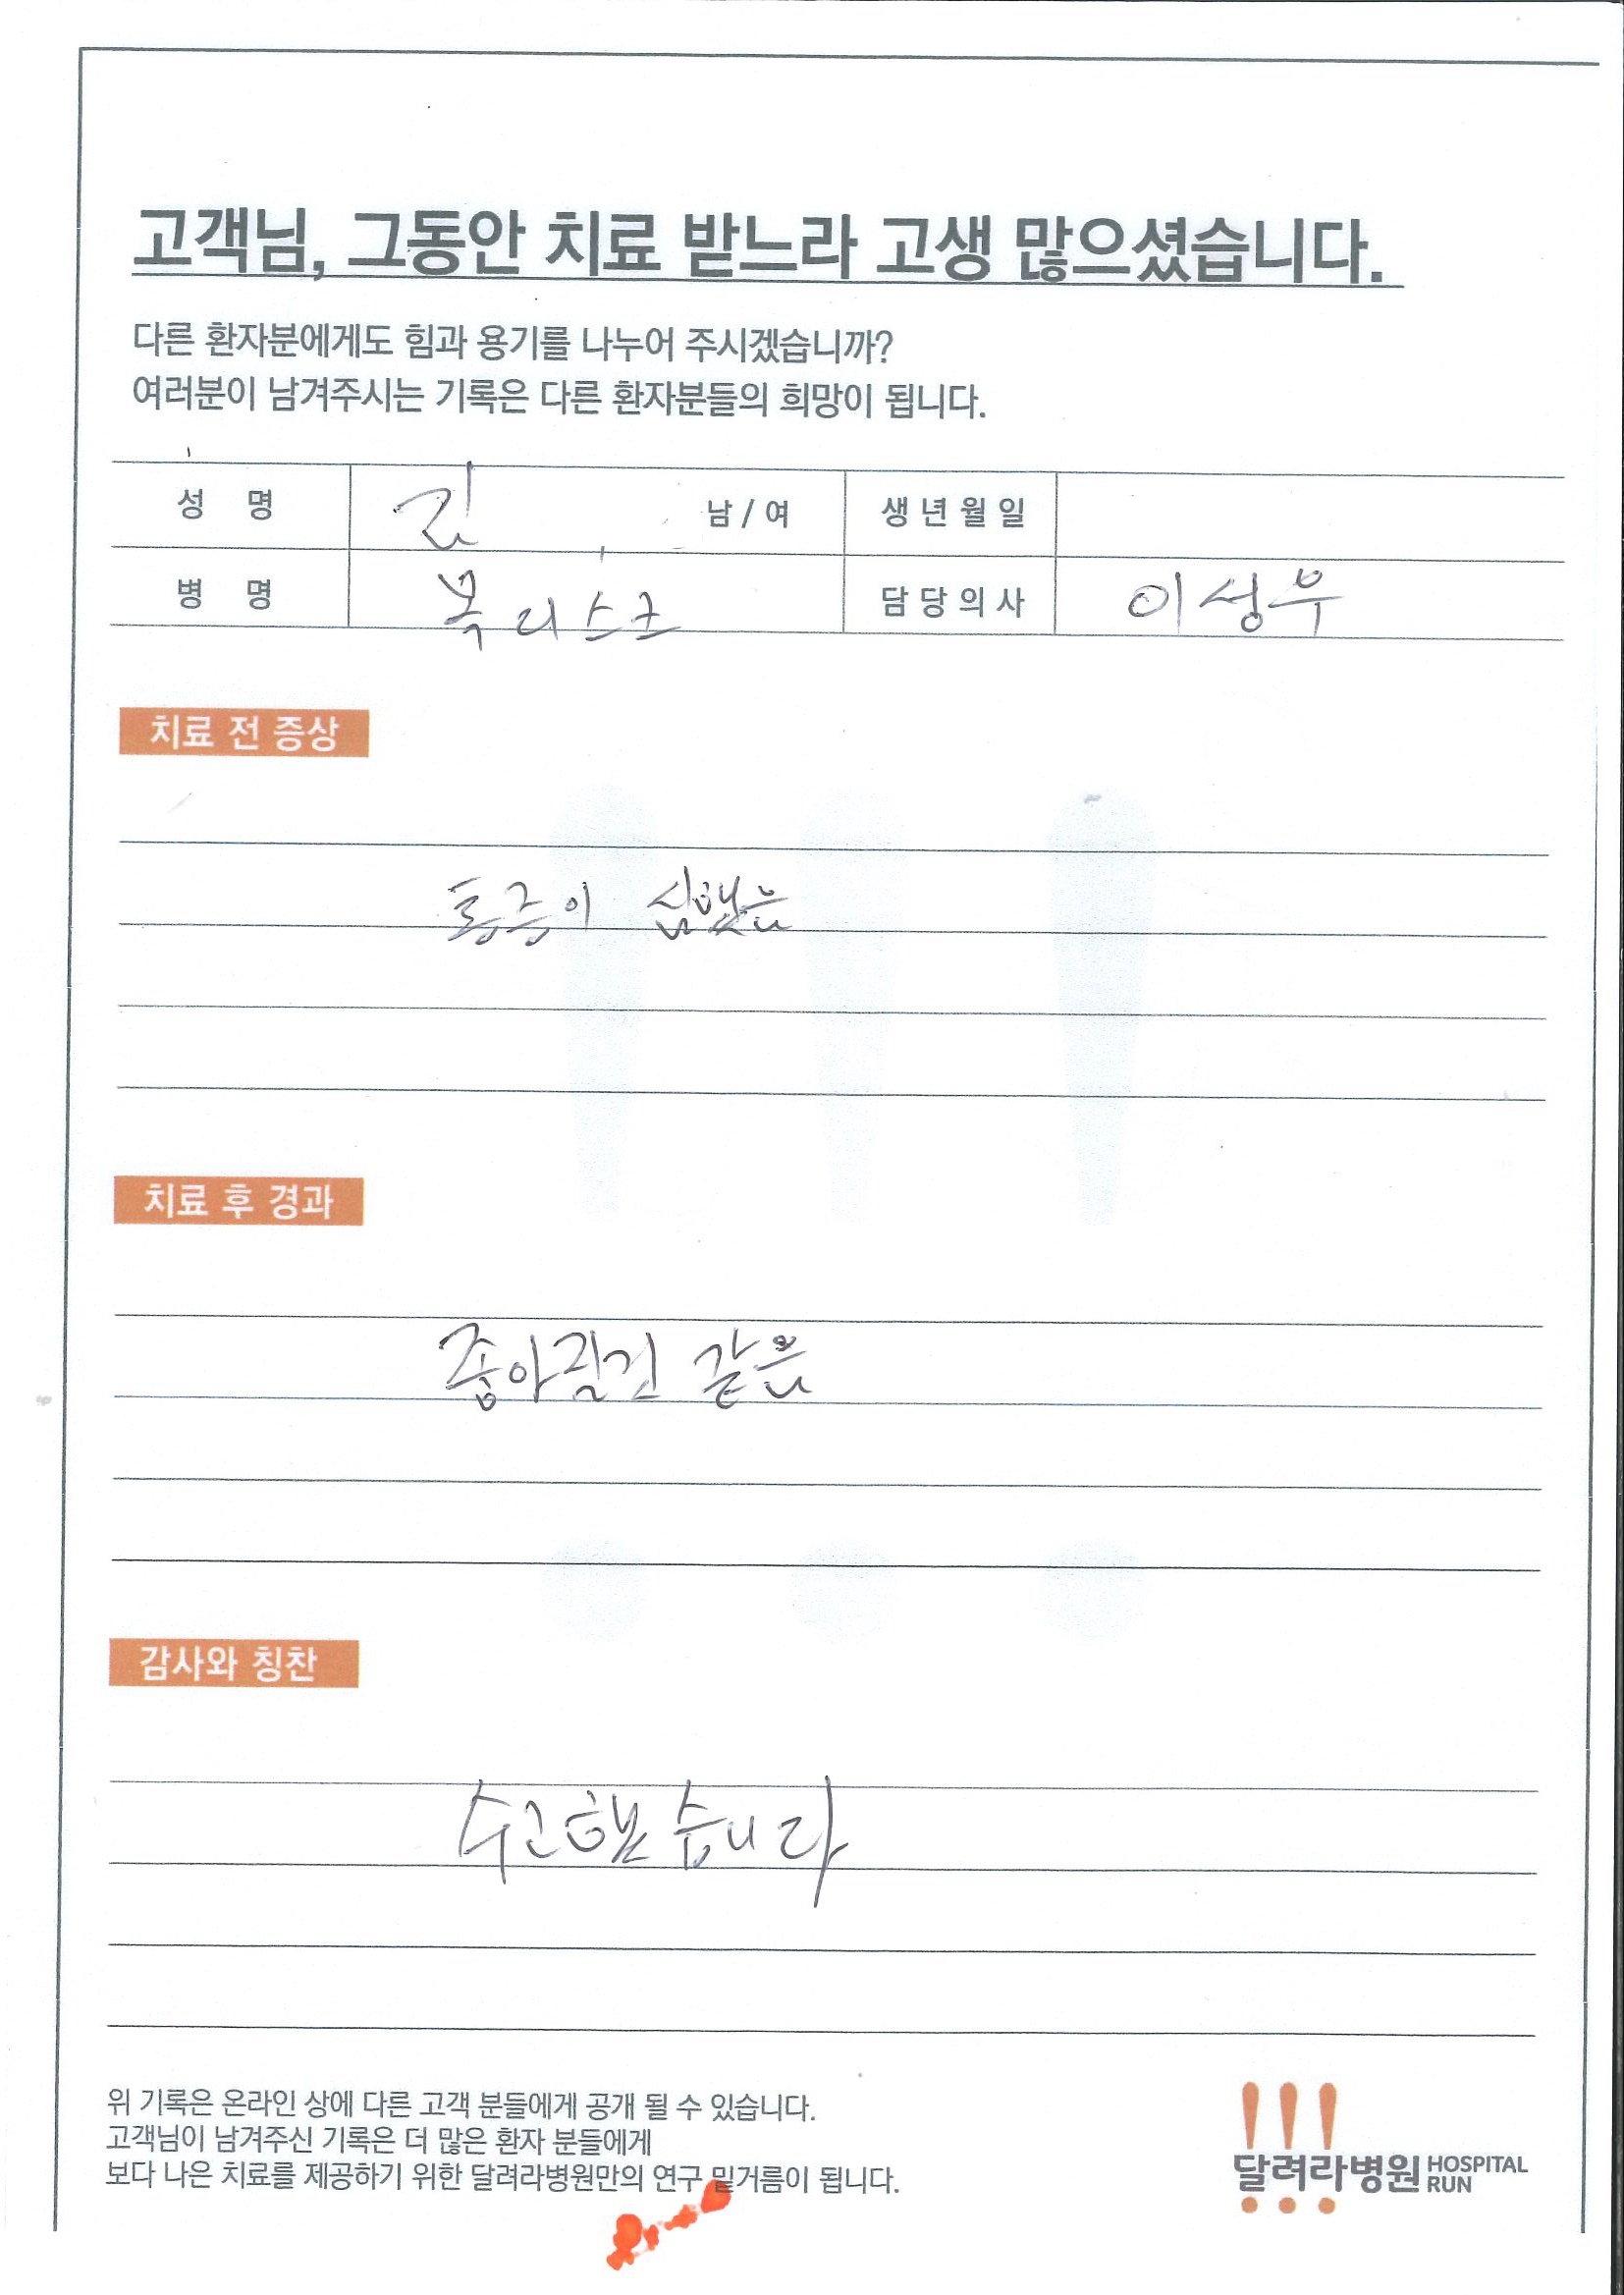 고객님, 그동안 치료 받느라 고생 많으셨습니다.
다른 환자분에게도 힘과 용기를 나누어 주시겠습니까?
여러분이 남겨주시는 기록은 다른 환자분들의 희망이 됩니다.
성 명 김 남 / 여 생년월일
병 명 목디스크 담당의사 이성우
치료 전 증상
통증이 심했음
치료 후 경과
좋아질건 같음
감사와 칭찬
수고했습니다
위 기록은 온라인 상에 다른 고객 분들에게 공개 될 수 있습니다.
고객님이 남겨주신 기록은 더 많은 환자 분들에게
보다 나은 치료를 제공하기 위한 달려라병원만의 연구 밑거름이 됩니다.
달려라병원 HOSPITAL RUN